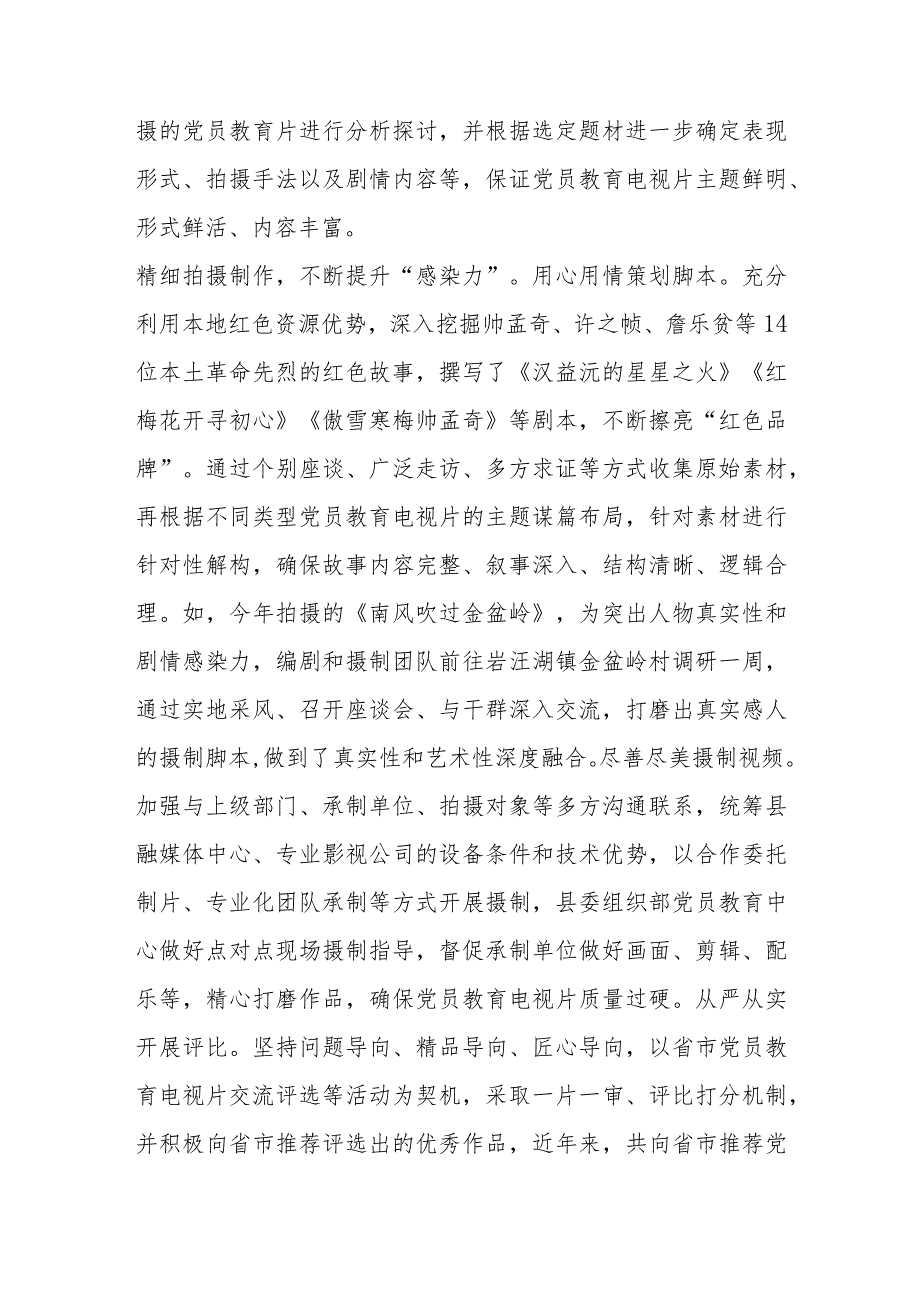 摄的党员教育片进行分析探讨，并根据选定题材进一步确定表现
形式、拍摄手法以及剧情内容等，保证党员教育电视片主题鲜明、
形式鲜活、内容丰富。
精细拍摄制作，不断提升“感染力”。用心用情策划脚本。充分
利用本地红色资源优势，深入挖掘帅孟奇、许之帧、詹乐贫等14
位本土革命先烈的红色故事，撰写了《汉益沅的星星之火》《红
梅花开寻初心》《傲雪寒梅帅孟奇》等剧本，不断擦亮“红色品
牌”。通过个别座谈、广泛走访、多方求证等方式收集原始素材，
再根据不同类型党员教育电视片的主题谋篇布局，针对素材进行
针对性解构，确保故事内容完整、叙事深入、结构清晰、逻辑合
理。如，今年拍摄的《南风吹过金盆岭》，为突出人物真实性和
剧情感染力，编剧和摄制团队前往岩汪湖镇金盆岭村调研一周，
通过实地采风、召开座谈会、与干群深入交流，打磨出真实感人
的摄制脚本,做到了真实性和艺术性深度融合。尽善尽美摄制视频。
加强与上级部门、承制单位、拍摄对象等多方沟通联系，统筹县
融媒体中心、专业影视公司的设备条件和技术优势，以合作委托
制片、专业化团队承制等方式开展摄制，县委组织部党员教育中
心做好点对点现场摄制指导，督促承制单位做好画面、剪辑、配
乐等，精心打磨作品，确保党员教育电视片质量过硬。从严从实
开展评比。坚持问题导向、精品导向、匠心导向，以省市党员教
育电视片交流评选等活动为契机，采取一片一审、评比打分机制，
并积极向省市推荐评选出的优秀作品，近年来，共向省市推荐党